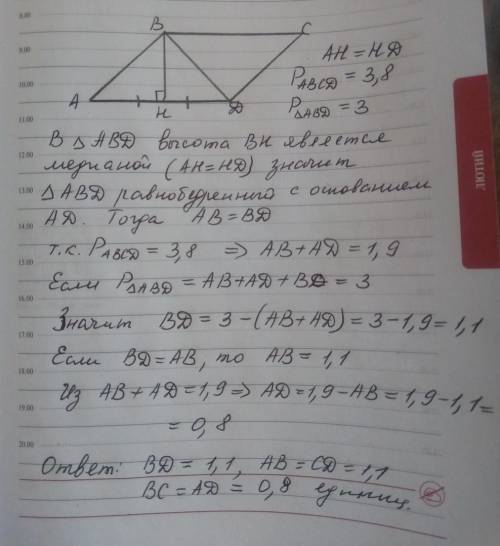 8.00
B C
9.00
AH = HD
10.00
P ABCD = 3,8
A H D
P ΔABD = 3
11.00
В Δ ABD высота BH является
12.00
медианой (AH=HD) значит
13.00
Δ ABD равнобедренный с основанием
AD. Тогда AB = BD
14.00
т.к. P ABCD = 3,8 ⇒ AB+AD = 1,9
15.00
Если P ΔABD = AB+AD+BD = 3
16.00
Значит BD = 3-(AB+AD) = 3-1,9 = 1,1
17.00
Если BD=AB, то AB = 1,1
18.00
Из AB+AD=1,9 ⇒ AD=1,9-AB = 1,9-1,1=
19.00
= 0,8
20.00
Ответ: BD = 1,1, AB = CD = 1,1
BC = AD = 0,8 единиц.
ЛЮТИЙ